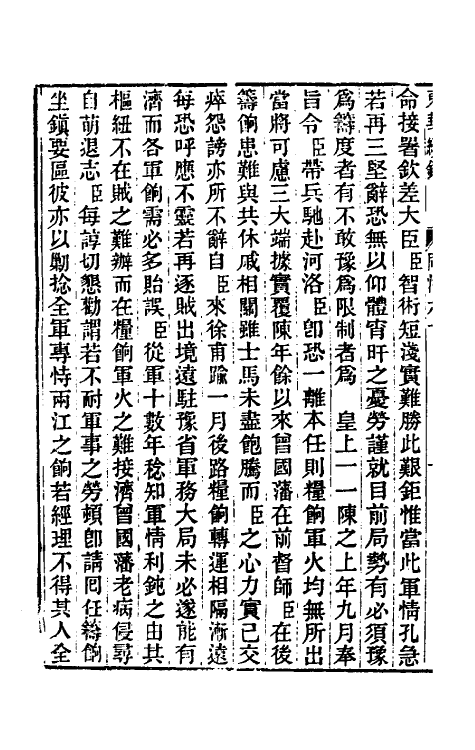 命接署欽差大臣臣智術短淺實難勝此艱鉅惟當此軍情孔急
若再三堅辭恐無以仰體宵旰之憂勞謹就目前局勢有必須豫
爲籌度者有不敢豫爲限制者爲　皇上一一陳之上年九月奉
旨令臣帶兵馳赴河洛臣卽恐一離本任則糧餉軍火均無所出
當將可慮三大端據實覆陳年餘以來曾國藩在前督師臣在後
籌餉患難與共休戚相關雖士馬未盡飽騰而臣之心力實已交
瘁怨謗亦所不辭自臣來徐甫踰一月後路糧餉轉運相隔漸遠
每恐呼應不靈若再逐賊出境遠駐豫省軍務大局未必遂能有
濟而各軍餉需必多貽誤臣從軍十數年稔知軍情利鈍之由其
樞紐不在賊之難辦而在糧餉軍火之難接濟曾國藩老病侵尋
自萌退志臣每諄切懇勸謂若不耐軍事之勞頓卽請囘任籌餉
坐鎮要區彼亦以勦捻全軍專恃兩江之餉若經理不得其人全